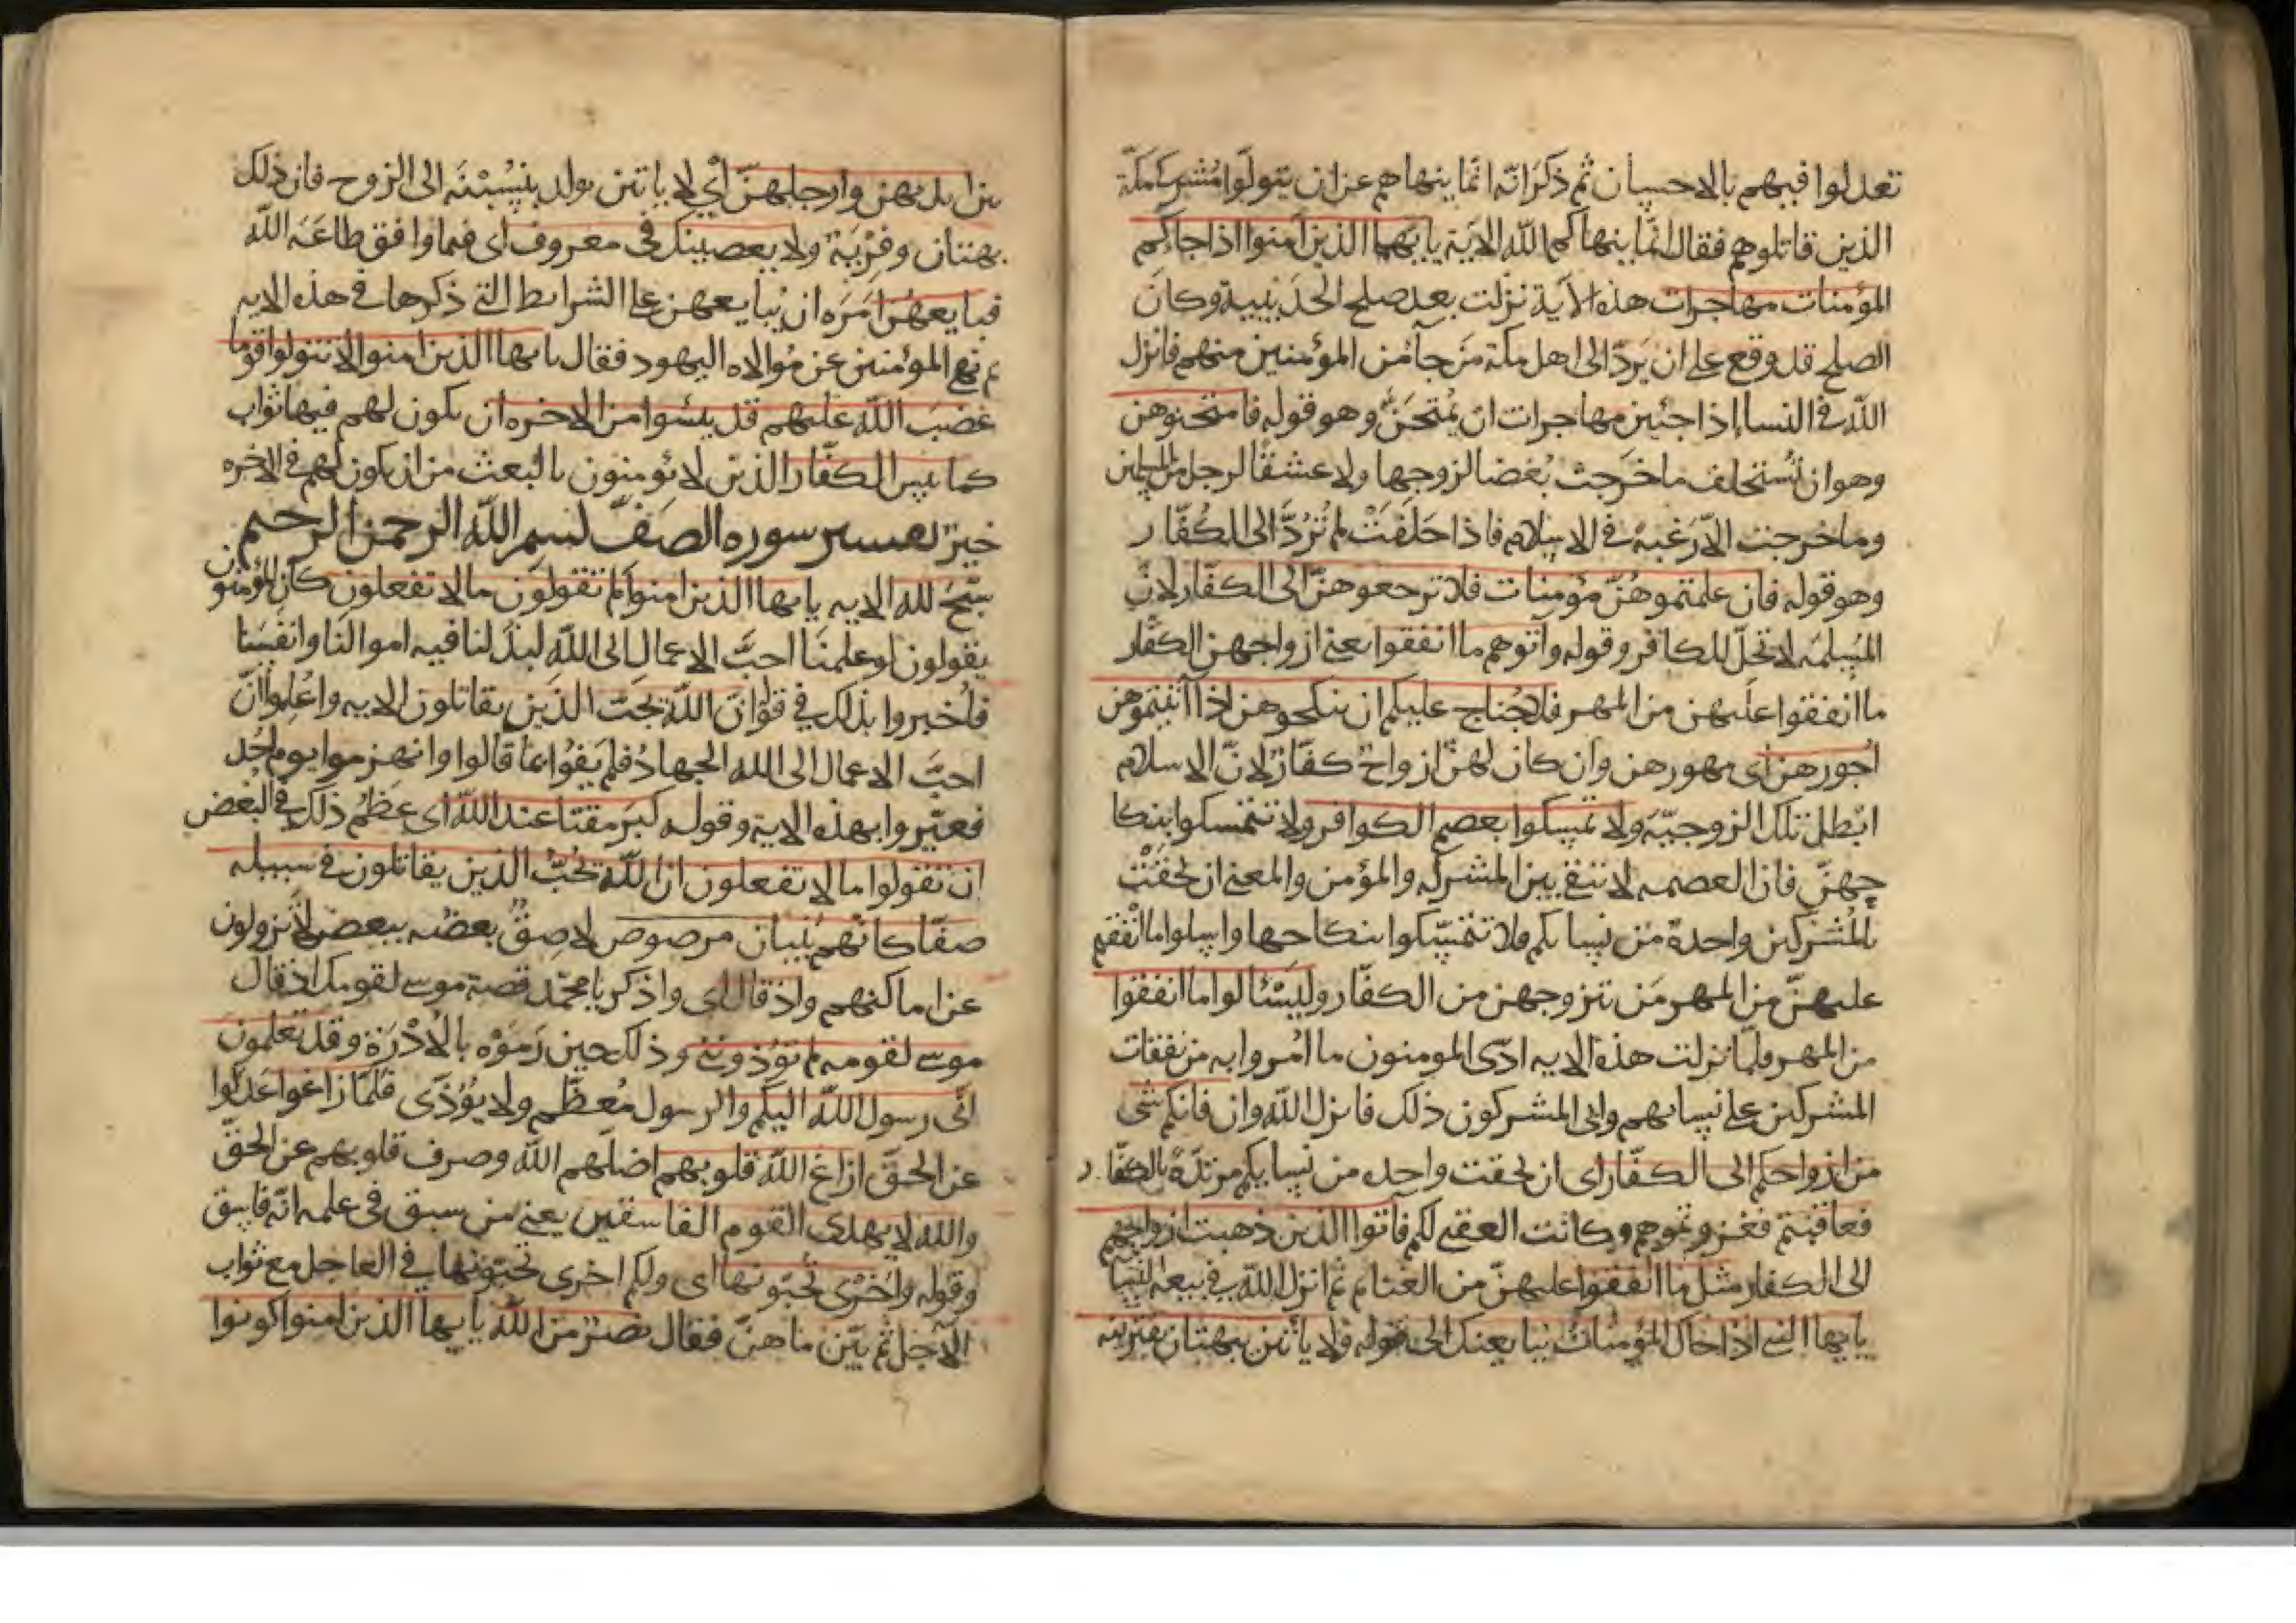 تعدلوا فيهم بالاحسان ثم ذكر انه انما ينهاهم عن ان يتولوا مشركي مكة
الذين قاتلوهم فقال انما ينهاكم الله الاية يايها الذين آمنوا اذا جاكم
المؤمنات مهاجرات هذه الآية نزلت بعد صلح الحديبية وكان
الصلح قد وقع على ان يرد الى اهل مكة من جآ من المؤمنين منهم فانزل
الله في النسا اذا جئين مهاجرات ان يمتحن وهو قوله فامتحنوهن
وهو ان تستحلف ما خرجت بغضا لزوجها ولا عشقا لرجل من المسلمين
وما خرجت الا رغبة في الاسلام فاذا حلفت لم ترد الى الكفار
وهو قوله فان علمتموهن مؤمنات فلا ترجعوهن الى الكفار لان
المسلمه لا تحل للكافر وقوله وآتوهم ما انفقوا يعني ازواجهن الكفار
ما انفقوا عليهن من المهر فلا جناح عليكم ان ينكحوهن اذا آتيتموهن
اجورهن اى مهورهن وان كان لهن ازواج كفار لان الاسلام
ابطل تلك الزوجية ولا تمسكوا بعصم الكوافر ولا تتمسكوا بنكا
حهن فان العصمه لا تبقى بين المشركه والمؤمن والمعنى ان لحقت
بالمشركين واحدة من نسايكم فلا تتمسكوا بنكاحها واسلوا ما انفقتم
عليهن من المهر من تزوجهن من الكفار وليسئالوا ما انفقوا
من المهر فلما نزلت هذه الايه ادى المومنون ما امروا به من نفقات
المشركين على نسايهم وابى المشركون ذلك فانزل الله وان فاتكم شى
من ازواجكم الى الكفار اى ان لحقت واحده من نسايكم مرتدة بالكفار
فعاقبتم فغزوتموهم وكانت العقبى لكم فاتوا الذين ذهبت ازواجهم
الى الكفار مثل ما انفقوا عليهن من الغنايم ثم انزل الله في بيعة النسا
يايها النبى اذا جاك المؤمنات يبايعنك الى قوله ولا يأتين ببهتان يفترينه
بين ايديهن وارجلهن أي لا ياتين بولد ينسبنه الى الزوج فان ذلك
بهتان وفرية ولا يعصينك في معروف اى فيما وافق طاعة الله
فبايعهن امره ان يبايعهن على الشرايط التي ذكرها في هذه الايه
ثم نهى المؤمنين عن موالاه اليهود فقال يايها الذين امنوا لا تتولوا قوما
غضب الله عليهم قد يئسوا من الاخره ان يكون لهم فيها ثواب
كما يئس الكفار الذين لا يؤمنون بالبعث من ان يكون لهم في الاخره
خير تفسير سوره الصف بسم الله الرحمن الرحيم
سبح لله الايه يايها الذين امنوا لم تقولون ما لا تفعلون كان المؤمنون
يقولون لو علمنا احب الاعمال الى الله لبذلنا فيه اموالنا وانفسنا
فاخبروا بذلك في قوله ان الله يحب الذين يقاتلون الايه واعلموا ان
احب الاعمال الى الله الجهاد فلم يفوا بما قالوا وانهزموا يوم احد
فعيروا بهذه الاية وقوله كبر مقتا عند الله اى عظم ذلك في البغض
ان تقولوا ما لا تفعلون ان الله يحب الذين يقاتلون في سبيله
صفا كانهم بنيان مرصوص لاصق بعضه ببعض لا يزولون
عن اماكنهم واذ قال اى واذكر يا محمد قصة موسى لقومك اذ قال
موسى لقومه لم تؤذونني وذلك حين رموه بالادرة وقد تعلمون
انى رسول الله اليكم والرسول معظم ولا يؤذى فلما زاغوا عدلوا
عن الحق ازاغ الله قلوبهم اضلهم الله وصرف قلوبهم عن الحق
والله لا يهدى القوم الفاسقين يعنى من سبق في علمه انه فاسق
وقوله واخرى تحبونها اى ولكم اخرى تحبونها في العاجل مع ثواب
الآجل ثم بين ما هن فقال نصر من الله يايها الذين امنوا كونوا